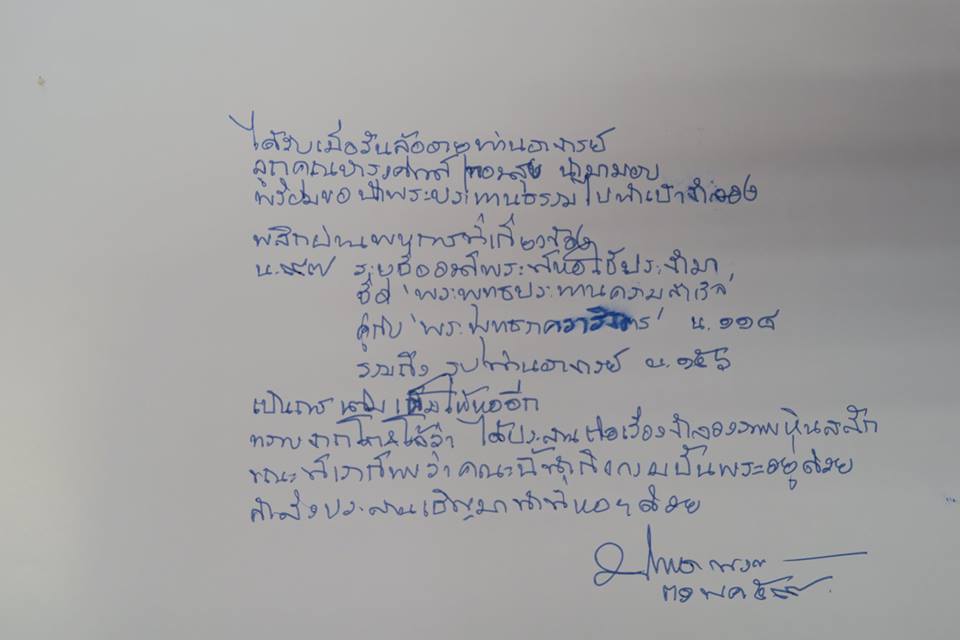 ได้รับเมื่อวันล้ออายุท่านอาจารย์
ลูกคุณยำรงศักดิ์ นำมามอบ
พร้อมขอนำพระประทานธรรมไปทำเบ้าจำลอง
พลิกผ่านพบการที่เกี่ยวข้อง
น.๙๗ ระบุชื่อองค์พระที่หอใช้ประจำมา
ชื่อ 'พระพุทธประทานความสำเร็จ'
คู่กับ 'พระพุทธภควา น.๑๑๕
รวมถึง รูปท่านอาจารย์ น.๑๕๖
เป็นการ เติมให้หออีก
ทราบจาก ว่า ได้ประสานต่อเรื่องจำลองภาพหินสลัก
ขณะที่เราก็พบว่าคณะนี้ทำกิจกรรมปั้นพระอยู่ด้วย
กำลังประสานเชิญมาทำที่หอฯ ด้วย
๓๑ พค ๕๙